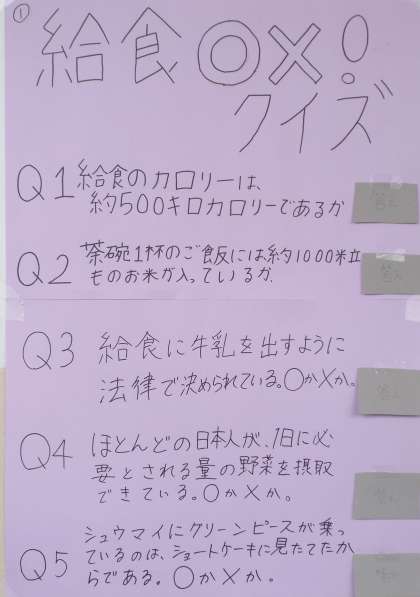 ①
給食○×!
クイズ
Q1 給食のカロリーは、
約500キロカロリーであるか
答え
Q2 茶碗1杯のご飯には約1000粒
ものお米が入っているか。
答え
Q3 給食に牛乳を出すように
法律で決められている。○か×か。
Q4 ほとんどの日本人が、1日に必
要とされる量の野菜を摂取
できている。○か×か。
Q5 シュウマイにグリーンピースが乗っ
ているのは、ショートケーキに見たてたか
らである。○か×か。